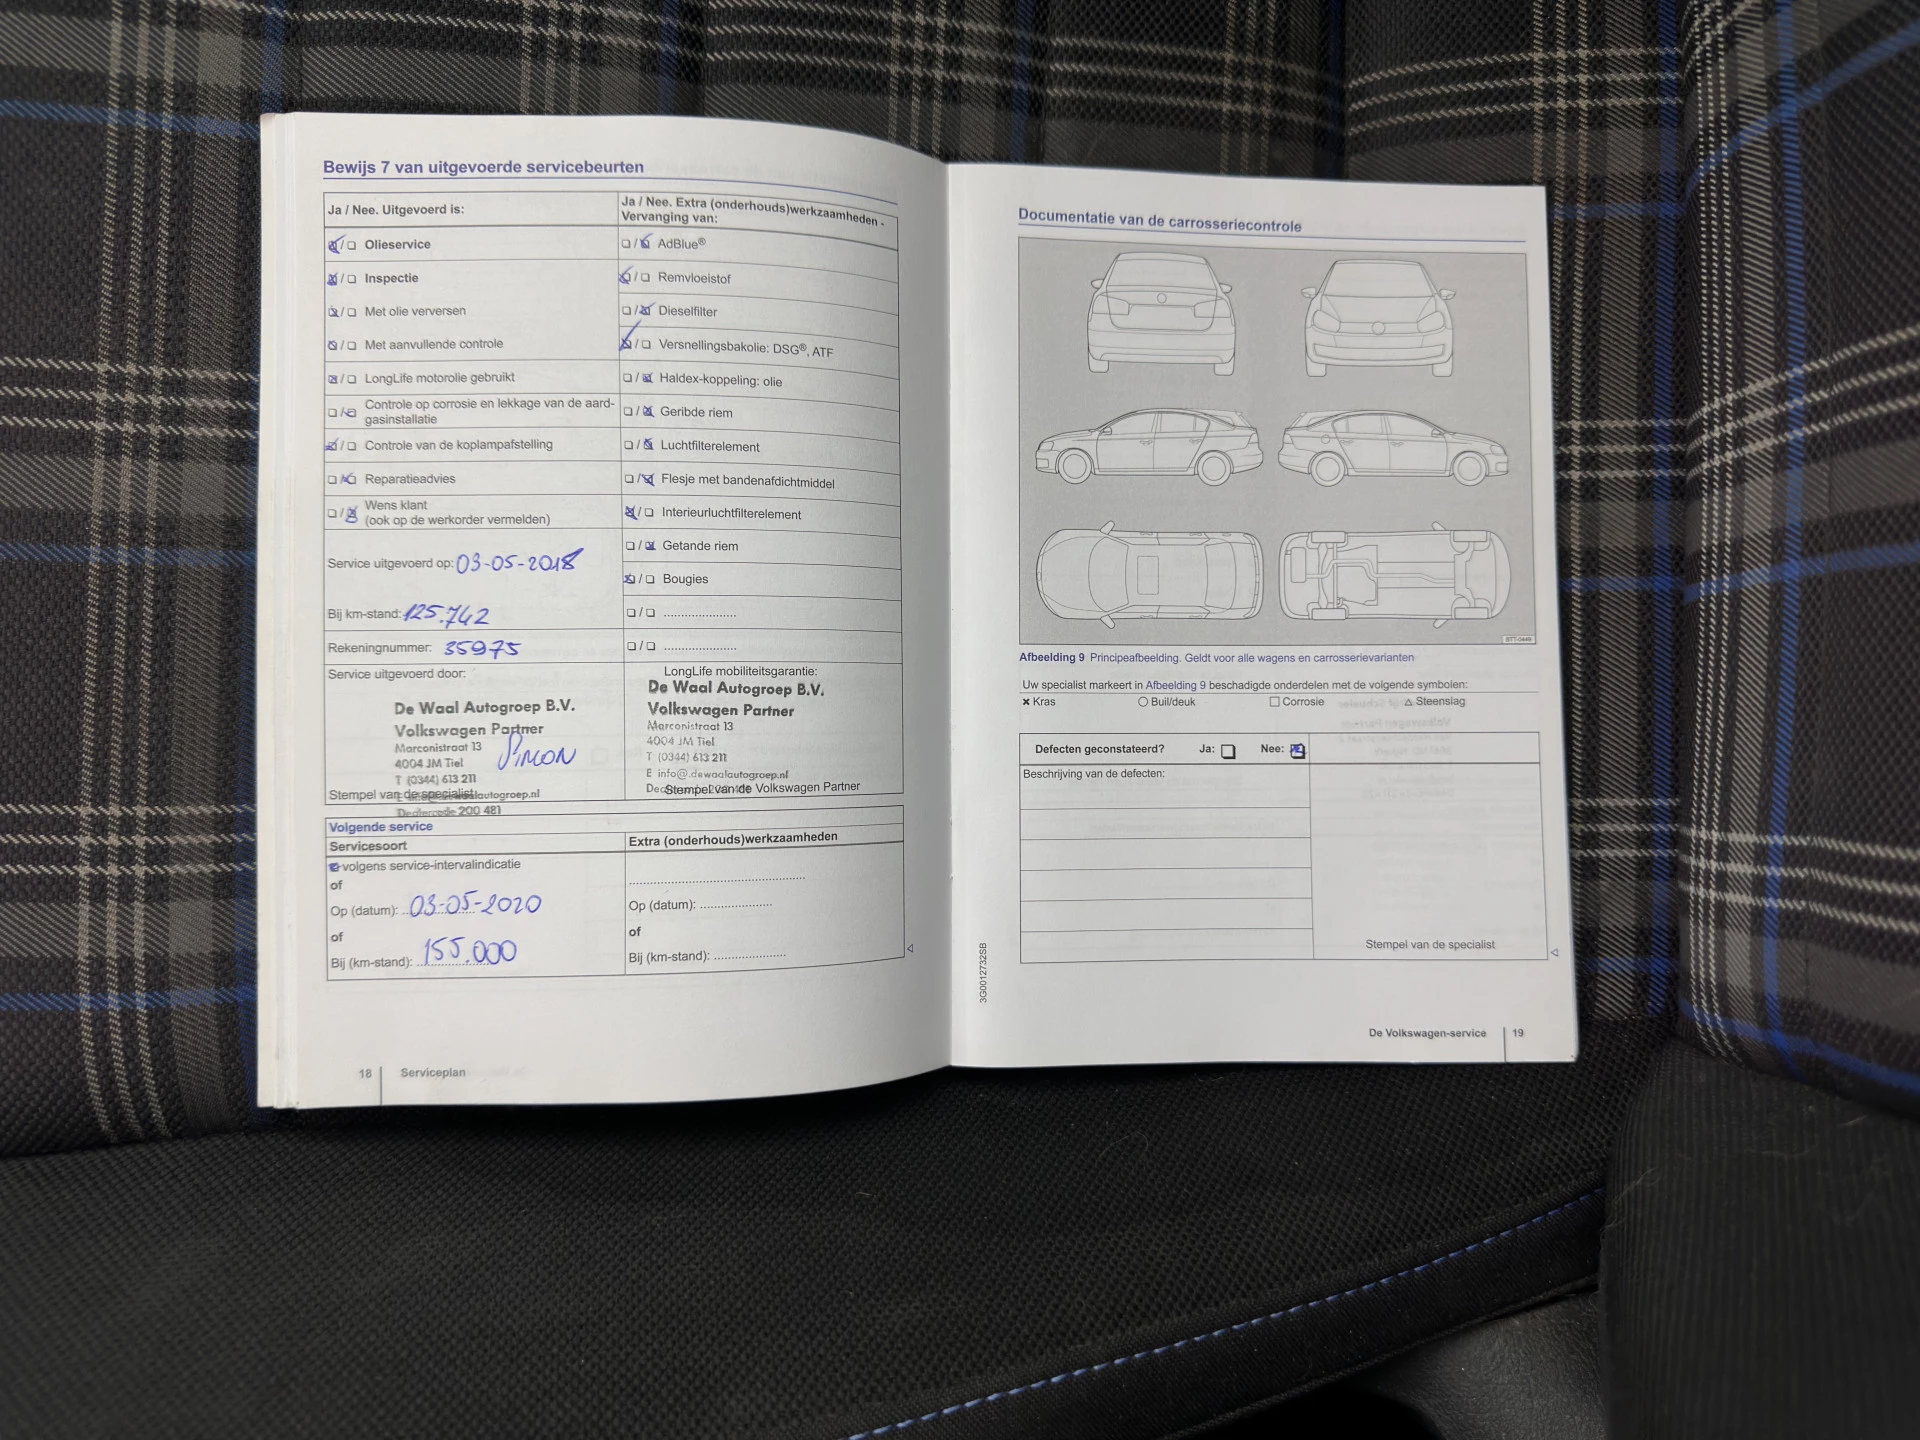 Bewijs 7 van uitgevoerde servicebeurten
Ja / Nee. Uitgevoerd is:
Olieservice
Inspectie
Met olie verversen
Met aanvullende controle
LongLife motorolie gebruikt
Controle op corrosie en lekkage van de aard-
gasinstallatie
Controle van de koplampafstelling
Reparatieadvies
Wens klant
(ook op de werkorder vermelden)
Service uitgevoerd op: 03-05-2018
Bij km-stand: 125.742
Rekeningnummer: 35975
Service uitgevoerd door:
De Waal Autogroep B.V.
Volkswagen Partner
Marconistraat 13
4004 JM Tiel
T (0344) 613 211
Stempel van de specialist
Dealercode 200 481
Ja / Nee. Extra (onderhouds)werkzaamheden -
Vervanging van:
AdBlue®
Remvloeistof
Dieselfilter
Versnellingsbakolie: DSG®, ATF
Haldex-koppeling: olie
Geribde riem
Luchtfilterelement
Flesje met bandenafdichtmiddel
Interieurluchtfilterelement
Getande riem
Bougies
LongLife mobiliteitsgarantie:
De Waal Autogroep B.V.
Volkswagen Partner
Marconistraat 13
4004 JM Tiel
T (0344) 613 211
E info@.dewaalautogroep.nl
Stempel van de Volkswagen Partner
Volgende service
Servicesoort
volgens service-intervalindicatie
of
Op (datum): 03-05-2020
of
Bij (km-stand): 155.000
Extra (onderhouds)werkzaamheden
Op (datum):
of
Bij (km-stand):
18 Serviceplan
Documentatie van de carrosseriecontrole
Afbeelding 9 Principeafbeelding. Geldt voor alle wagens en carrosserievarianten
Uw specialist markeert in Afbeelding 9 beschadigde onderdelen met de volgende symbolen:
Kras Buil/deuk Corrosie Steenslag
Defecten geconstateerd? Ja: Nee:
Beschrijving van de defecten:
Stempel van de specialist
3G0012732SB
De Volkswagen-service 19